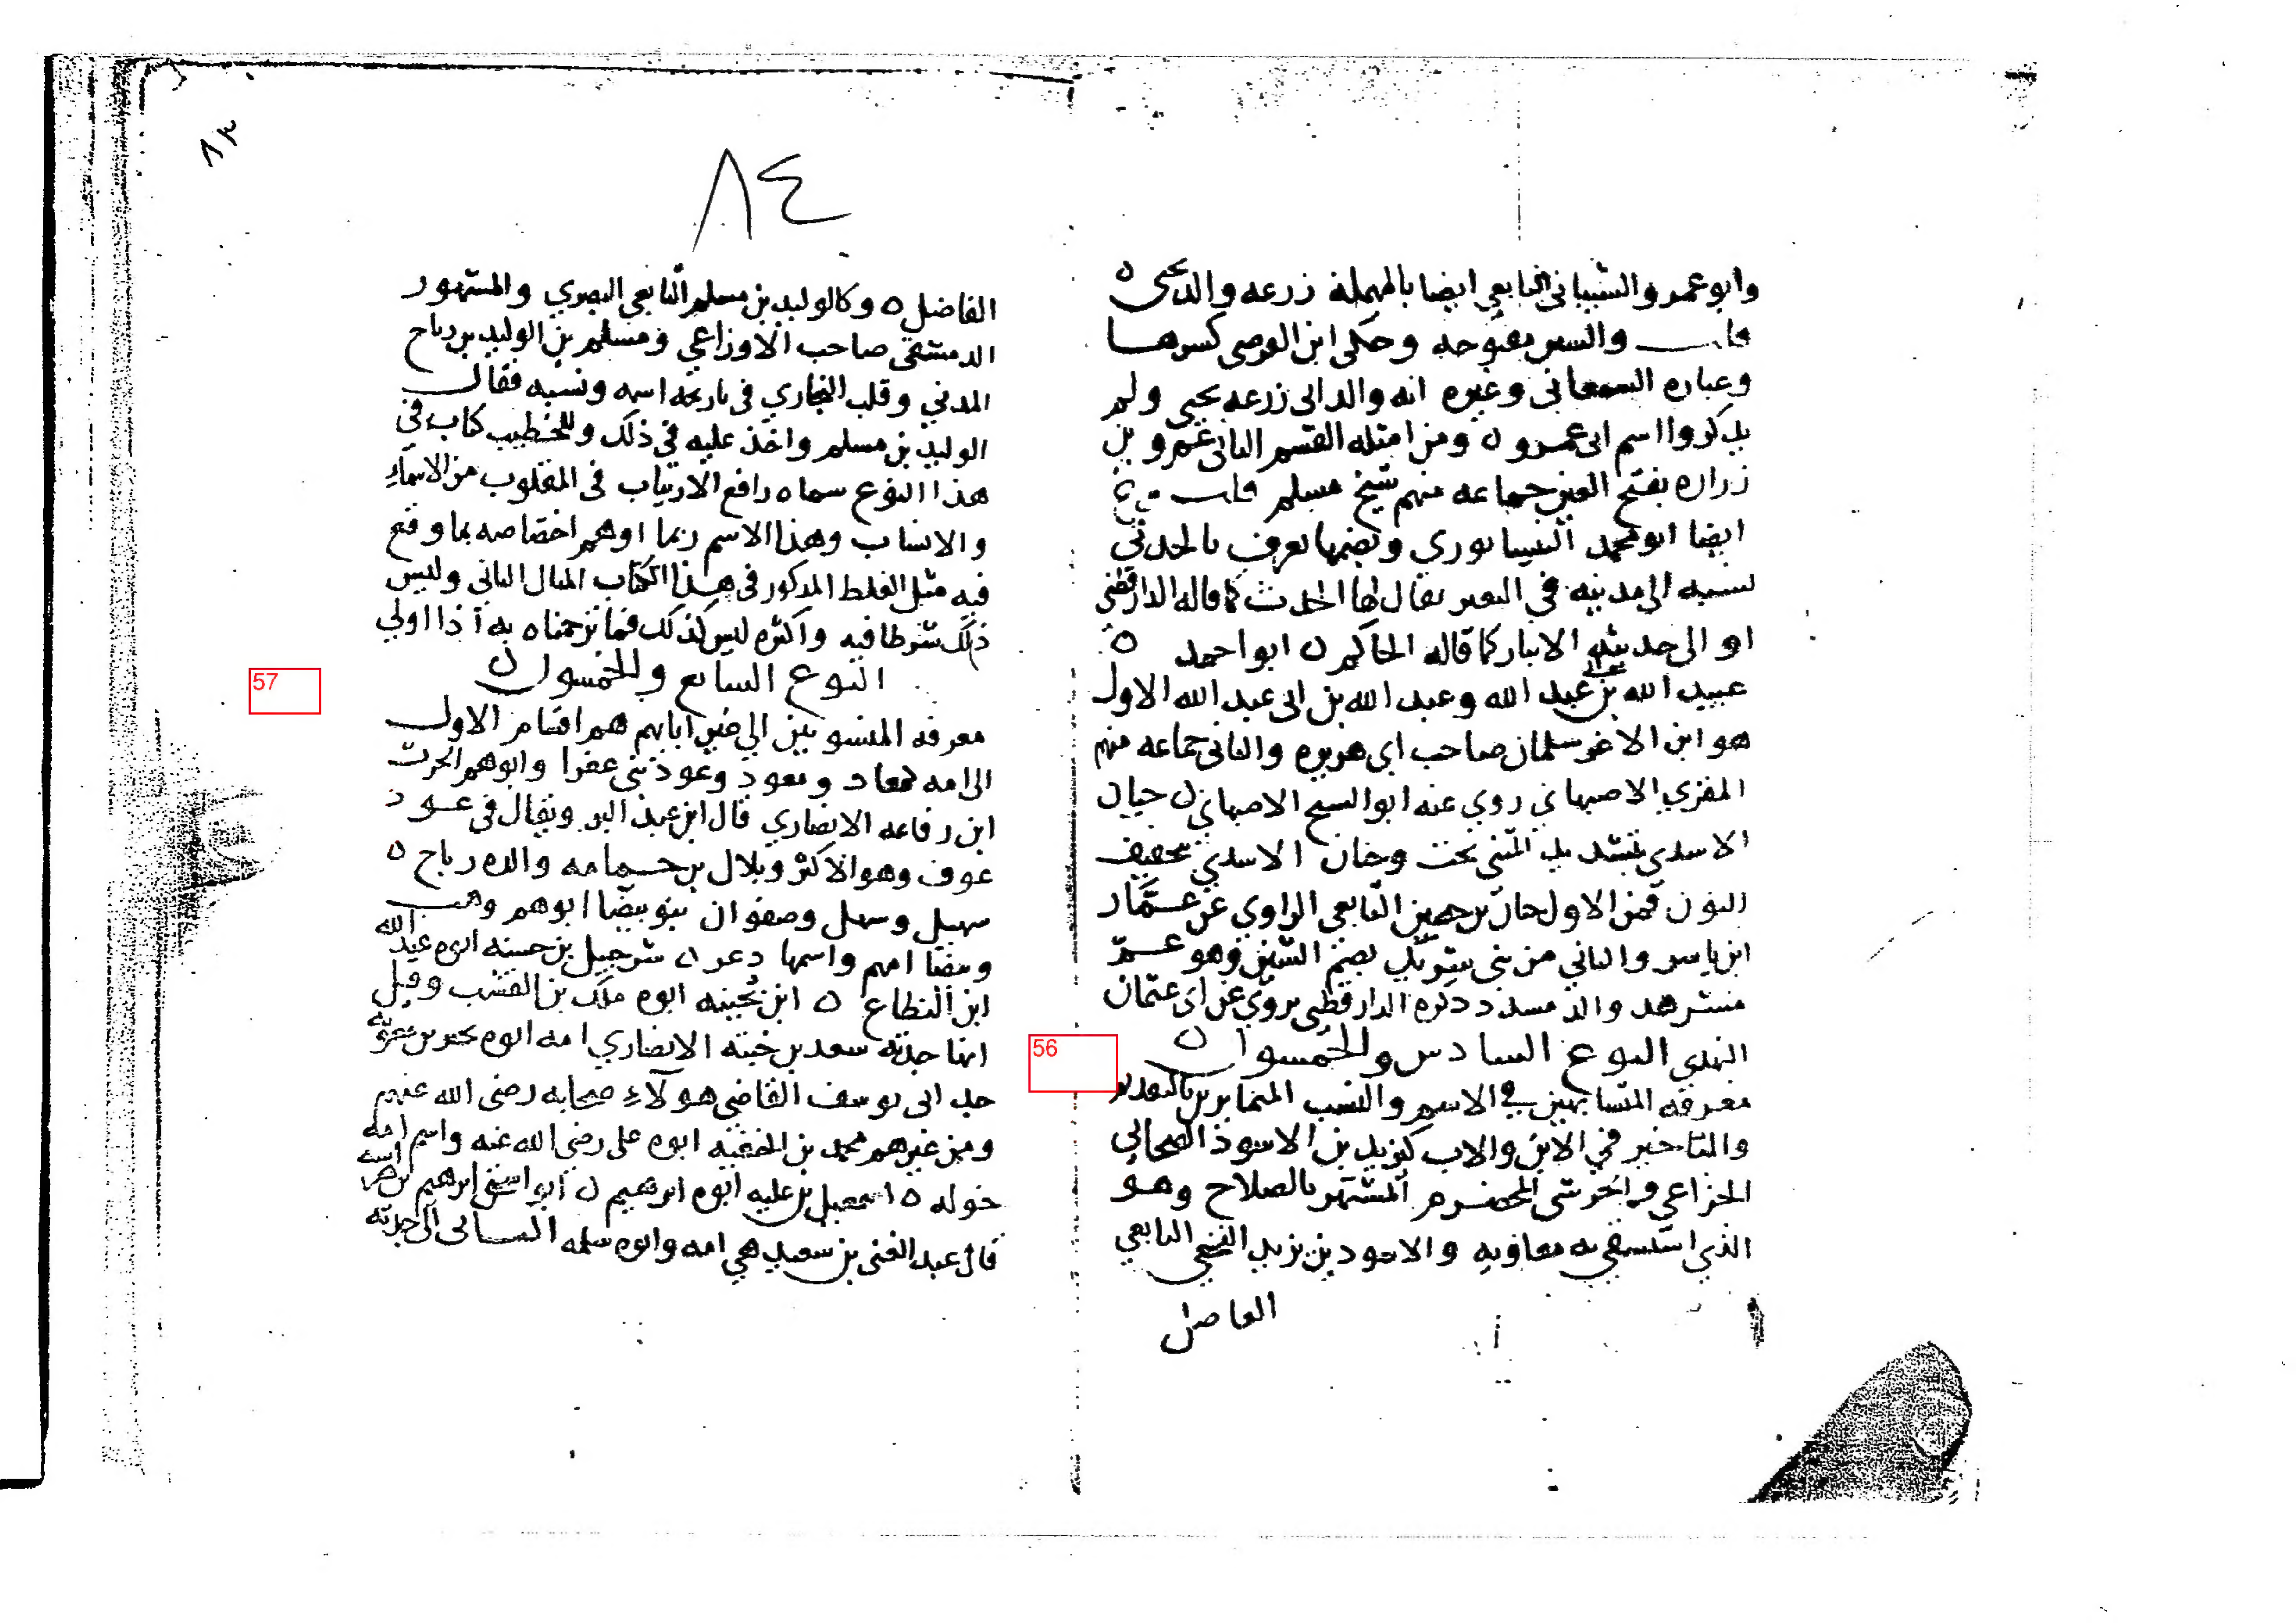 ٨٣
٨٤
وابو عمرو الشيباني التابعي ايضا بالمهملة زرعه والد يحيى ه
قلت والسين مفتوحه وحكى ابن العرصى كسرها
وعباره السمعانى وغيره انه والد ابى زرعه يحيى ولم
يذكروا اسم ابى عمرو ه ومن امثله القسم الثانى عمرو بن
زراره بفتح العين جماعه منهم شيخ مسلم قلت
ايضا ابو محمد النيسابوري وبضمها يعرف بالحدثي
نسبه الى مدينه في الثغر يقال لها الحدث كما قاله الدارقطنى
او الى حديثه الانبار كما قاله الحاكم ه ابو احمد ه
عبيد الله بن عبد الله وعبد الله بن ابى عبد الله الاول
هو ابن الاغر سلمان صاحب ابى هريره والثانى جماعه منهم
المقري الاصبهاني روي عنه ابو الشيخ الاصبهاني ه حيان
الاسدي بتشديد المثنى تحت وحنان الاسدي بتخفيف
النون فمن الاول حيان بن حصين التابعي الراوي عن عمار
ابن ياسر والثاني من بنى شريك بضم الشين وهو عم
مسرهد والد مسدد ذكره الدارقطنى يروي عن ابى عثمان
النهدى النوع السادس والخمسون ه
معرفه المتشابهين في الاسم والنسب المتمايزين بالتقديم
والتاخير في الابن والاب كيزيد بن الاسود الصحابي
الخزاعي والجرشى المخضرم المشتهر بالصلاح وهو
الذي استسقى به معاويه والاسود بن يزيد النخعي التابعي
الفاضل
الفاضل ه وكالوليد بن مسلم التابعي البصري والمشهور
الدمشقي صاحب الاوزاعي ومسلم بن الوليد بن رباح
المدني وقلب البخاري فى تاريخه اسمه ونسبه فقال
الوليد بن مسلم واخذ عليه في ذلك وللخطيب كتاب في
هذا النوع سماه رافع الارتياب فى المقلوب من الاسماء
والانساب وهذا الاسم ربما اوهم اختصاصه بما وقع
فيه مثل الغلط المذكور فى هذا الكتاب المثال الثانى وليس
ذلك شرطا فيه واكثره ليس كذلك فما ترجمناه به اذا اولي
النوع السابع والخمسون ه
معرفه المنسوبين الي غير ابايهم هم اقسام الاول
الى امه كمعاذ ومعوذ وعوذ بنى عفرا وابوهم الحرث
ابن رفاعه الانصاري قال ابن عبد البر ويقال فى عوذ
عوف وهو الاكثر وبلال بن حمامه والده رباح ه
سهيل وسهل وصفوان بنو بيضا ابوهم وهب
وبيضا امهم واسمها دعد ه شرحبيل بن حسنه ابوه عبد الله
ابن المطاع ه ابن بحينه ابوه ملك بن القشب وقيل
انها جدته سعد بن حبته الانصاري امه ابوه بحير بن معويه
جد ابى يوسف القاضي هولاء صحابه رضى الله عنهم
ومن غيرهم محمد بن الحنفيه ابوه على رضي الله عنه واسم امه
خوله ه اسمعيل بن عليه ابوه ابرهيم ه ابو اسحق ابرهيم بن هراسه
قال عبد الغنى بن سعيد هي امه وابوه سلمه الثانى الى جدته
57
56